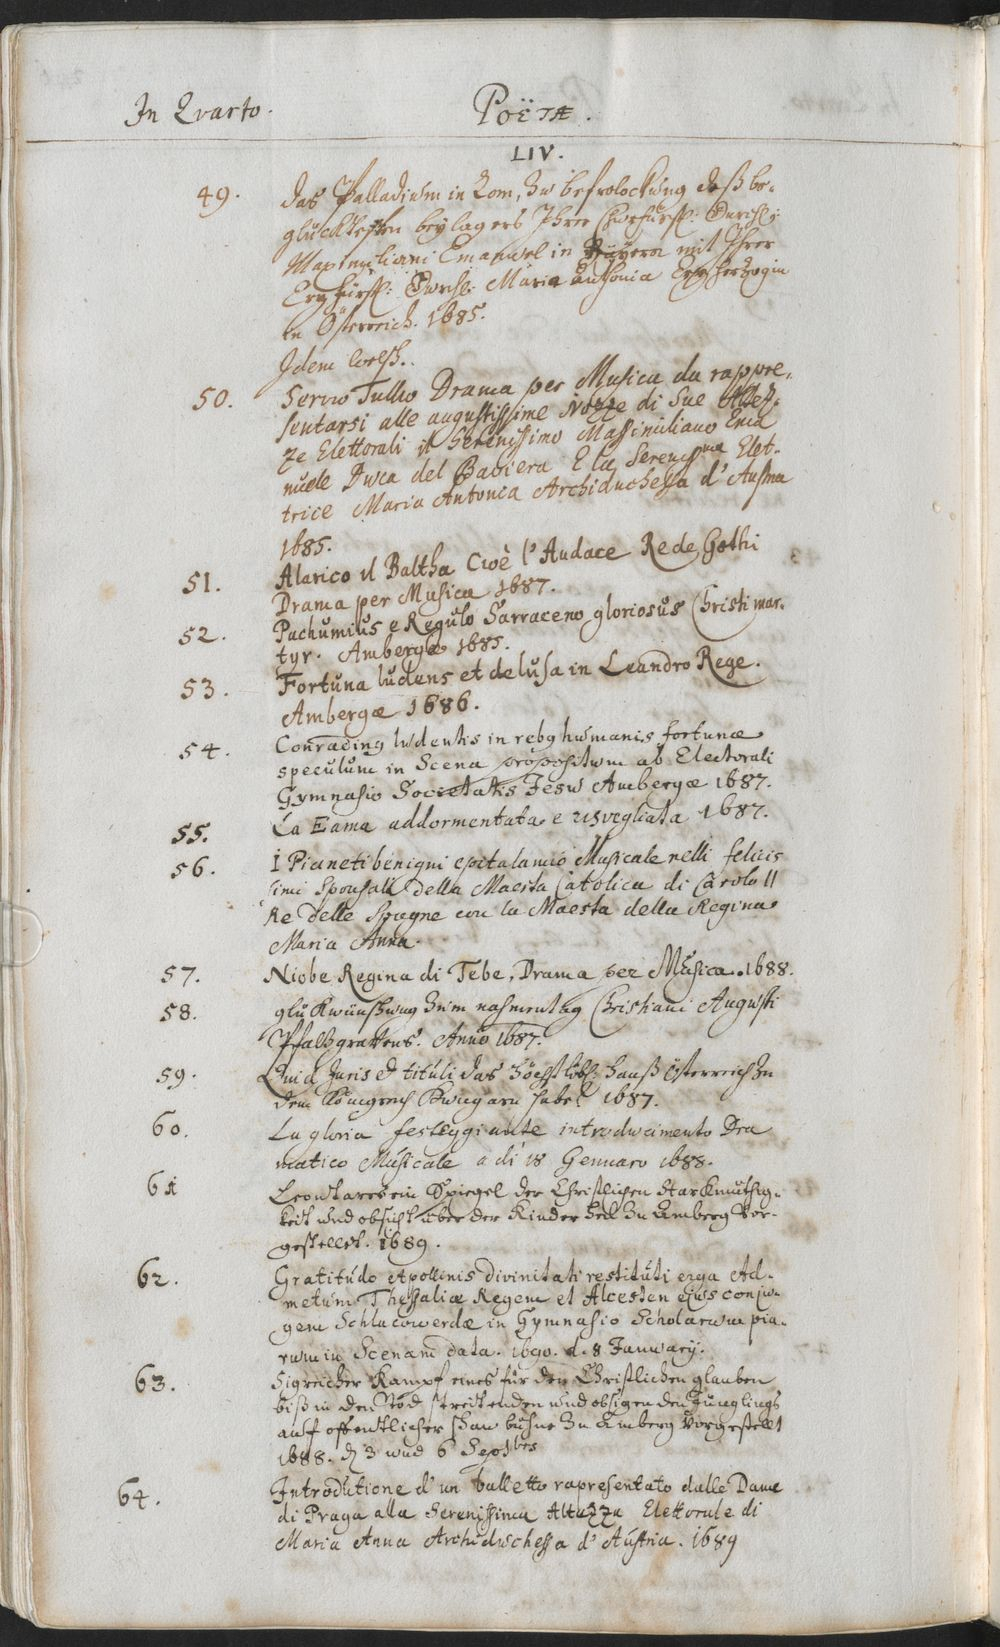 In Qvarto.
Poëtæ.
LIV.
49. Das Palladium in Rom, zu befrolockung deß be-
glücktesten beylagers Ihrer Churfürstl: Durchl:
Maximiliani Emanuel in Bayern mit Ihrer
Erzfürstl: Durchl. Maria Anthonia Erzherzogin
in Österreich. 1685.
Idem welsch.
50. Servio Tullio Drama per Musica da rappre-
sentarsi alle augustissime Nozze di Sue Altez-
ze Elettorali il Serenissimo Massimiliano Ema
nuele Duca del Baviera E la Sereniss.ma Elet-
trice Maria Antonia Archiduchessa d' Austria
1685.
51. Alarico il Baltha Cioè l'Audace Re de Gothi
Drama per Musica 1687.
52. Pachumius e Regulo Sarraceno gloriosus Christi mar-
tyr. Ambergæ 1685.
53. Fortuna ludens et delusa in Leandro Rege.
Ambergæ 1686.
54. Conradinq ludentis in rebq humanis fortunæ
speculum in Scena propositum ab Electorali
Gymnasio Societatis Jesu Ambergæ 1687.
55. La Fama addormentata e risvegliata 1687.
56. I Pianeti benigni epitalamio Musicale nelli felicis
simi Sponsali della Maesta Catolica di Carolo II
Re delle Spagne con la Maesta della Regina
Maria Anna.
57. Niobe Regina di Tebe, Drama per Musica. 1688.
58. glückwünschung zum nahmentag Christiani Augusti
Pfaltzgraffens. Anno 1687.
59. Quid Juris et tituli das höchstlöbl: hauß Österreich zu
dem Königreich Hungarn habe? 1687.
60. La gloria festeggiante introducimento Dra
matico Musicale a di 18 Gennaro 1688.
61 ein Spiegel der Christlichen Starkmüthig-
keit und obsicht über der Kinder heil zu Amberg vor-
gestellet. 1689.
62. Gratitudo Apollinis divinitati restituti erga Ad-
metum Thessaliæ Regem et Alcesten ejus conju-
gem Schlacowerdæ in Gymnasio Scholarum pia-
rum in Scenam data. 1690. d. 8 January.
63. Sigreicher Kampf eines für den Christlichen glauben
biß in den Tod streitenden und obsigenden Jünglings
auf offentlicher schau bühne zu Amberg vorgestellt
1688. d. 3 und 6 Septbris
64. Introdutione d' un balletto rapresentato dalle Dame
di Praga alla Serenissima Altezza Elettorale di
Maria Anna Archiduchessa d' Austria. 1689